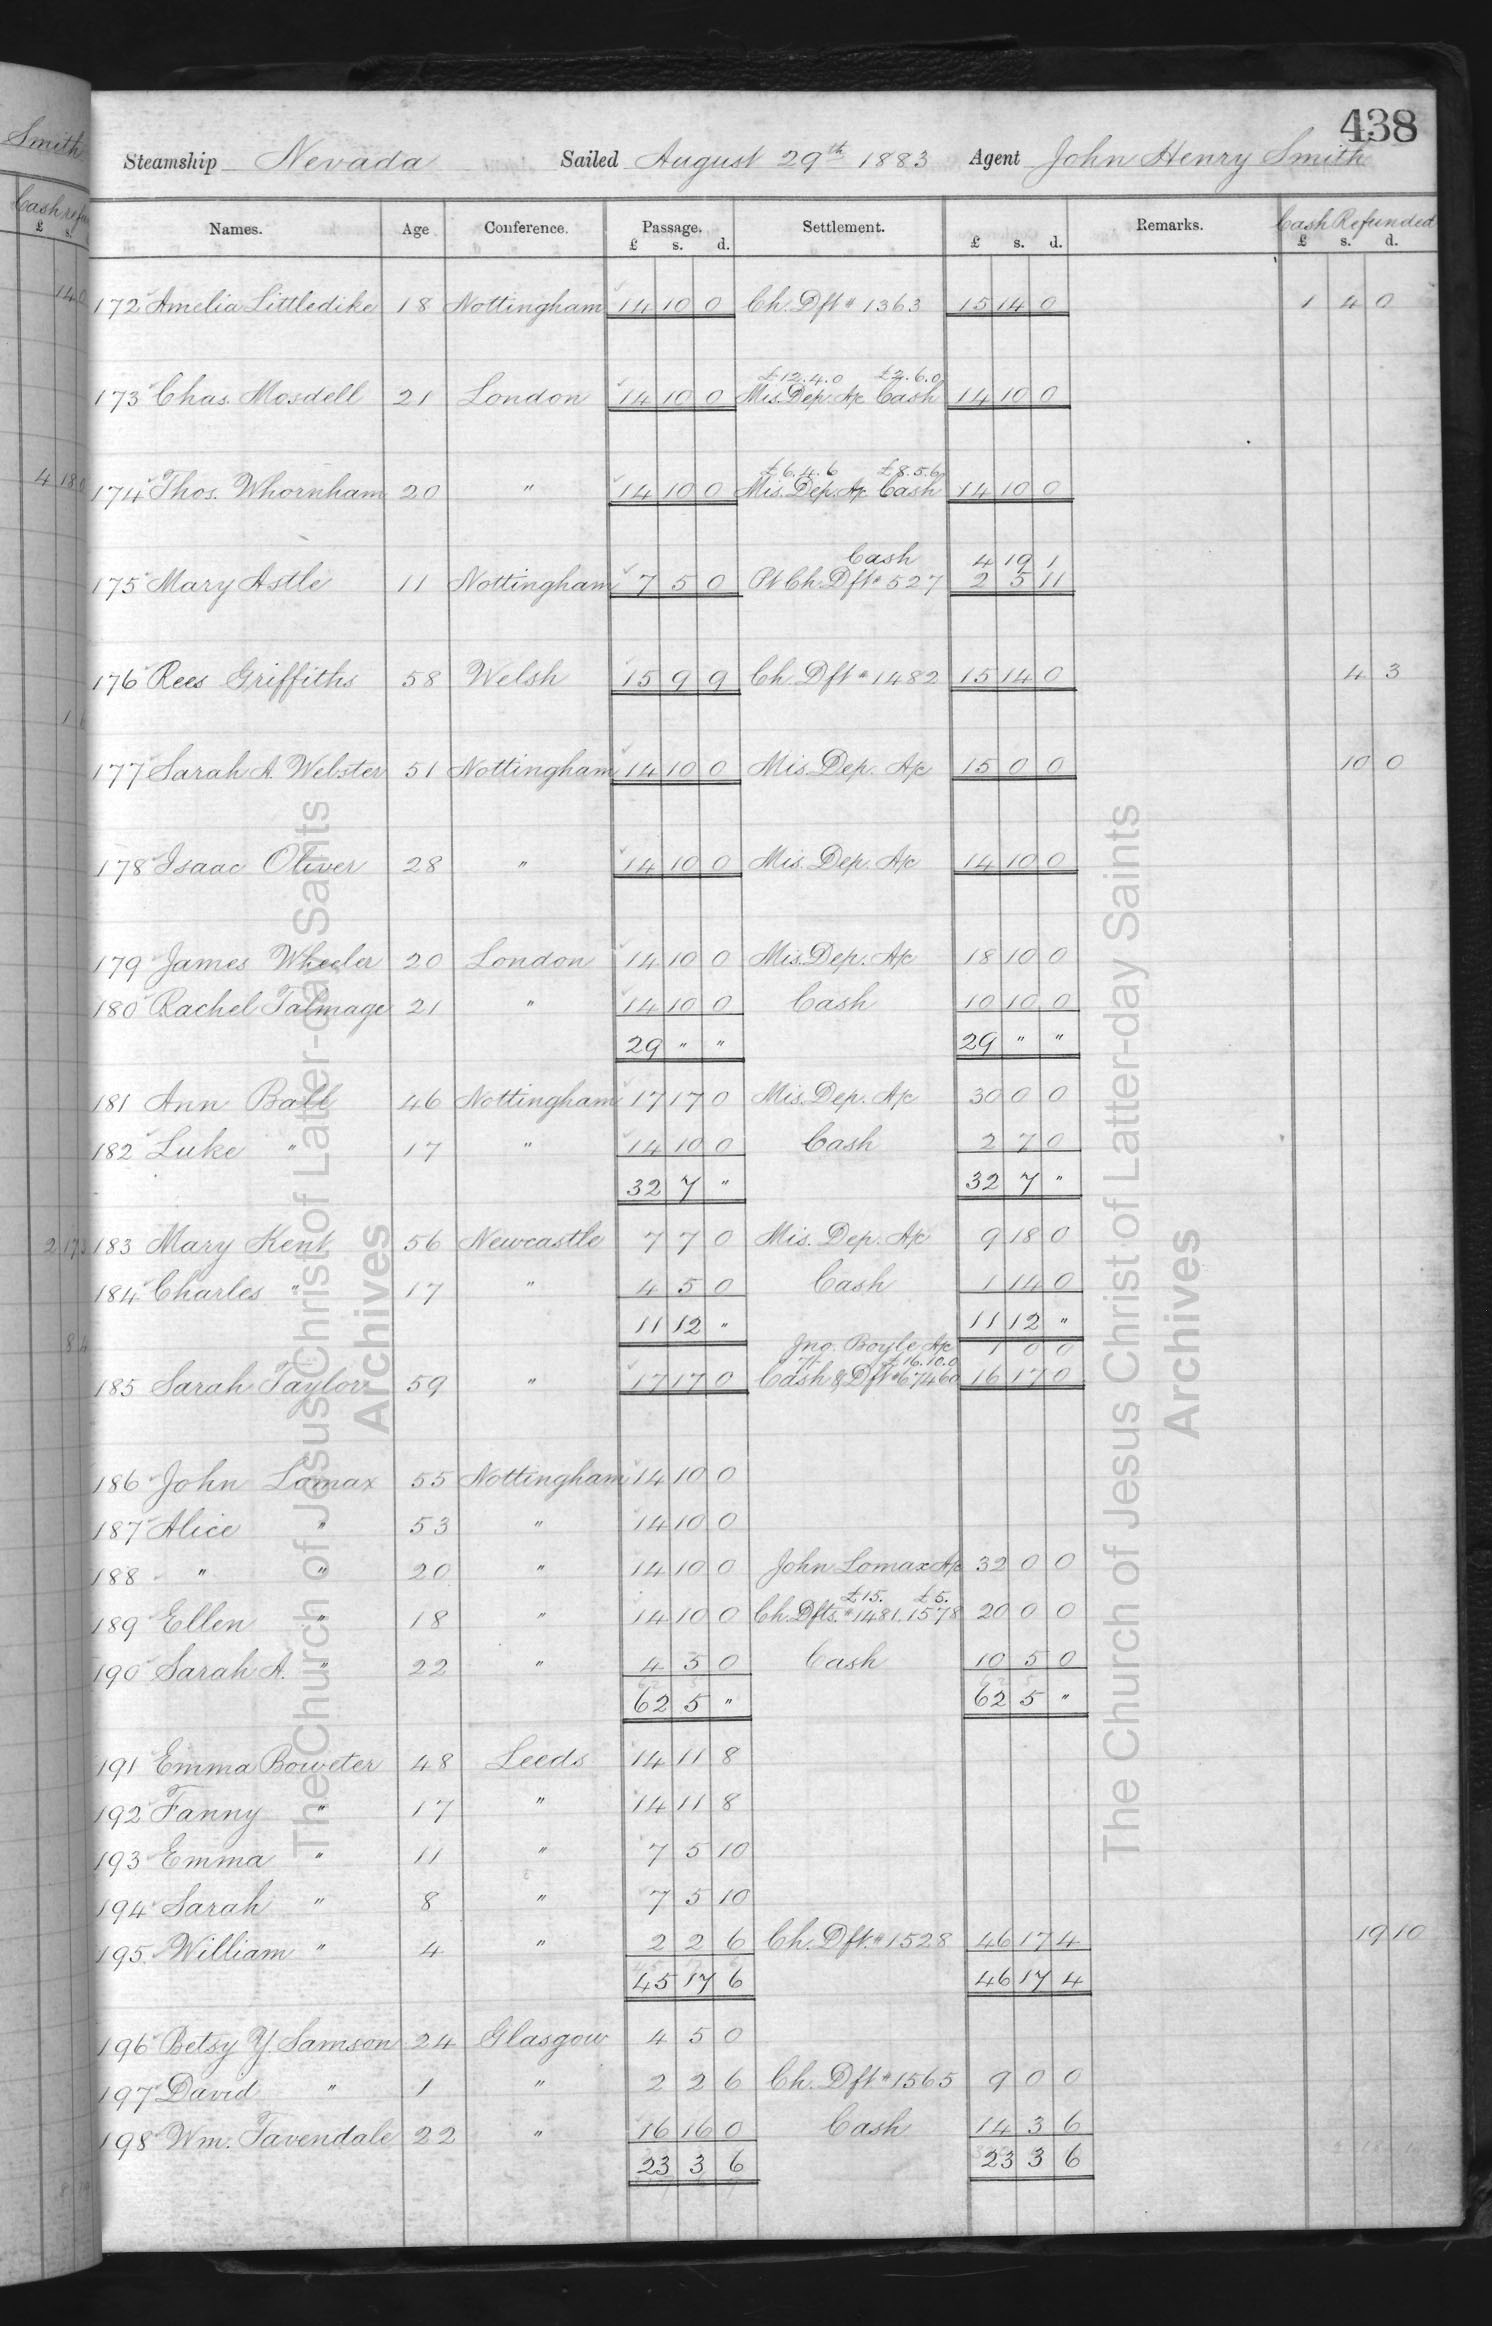 438
Steamship Nevada Sailed August 29th 1883 Agent John Henry Smith
Names. Age Conference. Passage. Settlement. Remarks. Cash Refunded
£ s. d. £ s. d. £ s. d.
172 Amelia Littledike 18 Nottingham 14 10 0 Ch. Dft # 1363 15 14 0 1 4 0
£12.4.0 £2.6.0
173 Chas. Mosdell 21 London 14 10 0 Mis. Dep. A/c Cash 14 10 0
£6.4.6 £8.5.6
174 Thos. Whornham 20 " 14 10 0 Mis. Dep. A/c Cash 14 10 0
Cash 4 19 1
175 Mary Astle 11 Nottingham 7 5 0 Pt Ch. Dft # 527 2 5 11
176 Rees Griffiths 58 Welsh 15 9 9 Ch. Dft # 1482 15 14 0 4 3
177 Sarah A. Webster 51 Nottingham 14 10 0 Mis. Dep. A/c 15 0 0 10 0
178 Isaac Oliver 28 " 14 10 0 Mis. Dep. A/c 14 10 0
179 James Wheeler 20 London 14 10 0 Mis. Dep. A/c 18 10 0
180 Rachel Talmage 21 " 14 10 0 Cash 10 10 0
29 " " 29 " "
181 Ann Ball 46 Nottingham 17 17 0 Mis. Dep. A/c 30 0 0
182 Luke " 17 " 14 10 0 Cash 2 7 0
32 7 " 32 7 "
183 Mary Kent 56 Newcastle 7 7 0 Mis. Dep. A/c 9 18 0
184 Charles " 17 " 4 5 0 Cash 1 14 0
11 12 " 11 12 "
Jno. Boyle A/c 1 0 0
£16.10.0
185 Sarah Taylor 59 " 17 17 0 Cash & Dft # 67460 16 17 0
186 John Lomax 55 Nottingham 14 10 0
187 Alice " 53 " 14 10 0
188 " " 20 " 14 10 0 John Lomax A/c 32 0 0
£15. £5.
189 Ellen " 18 " 14 10 0 Ch. Dfts. # 1481. 1578 20 0 0
190 Sarah A. " 22 " 4 5 0 Cash 10 5 0
62 5 " 62 5 "
191 Emma Boweter 48 Leeds 14 11 8
192 Fanny " 17 " 14 11 8
193 Emma " 11 " 7 5 10
194 Sarah " 8 " 7 5 10
195 William " 4 " 2 2 6 Ch. Dft. # 1528 46 17 4 19 10
45 17 6 46 17 4
196 Betsy Y. Samson 24 Glasgow 4 5 0
197 David " 1 " 2 2 6 Ch. Dft. # 1565 9 0 0
198 Wm. Tavendale 22 " 16 16 0 Cash 14 3 6
23 3 6 23 3 6
Smith
£ s.
4 18
The Church of Jesus Christ of Latter-day Saints
Archives
The Church of Jesus Christ of Latter-day Saints
Archives